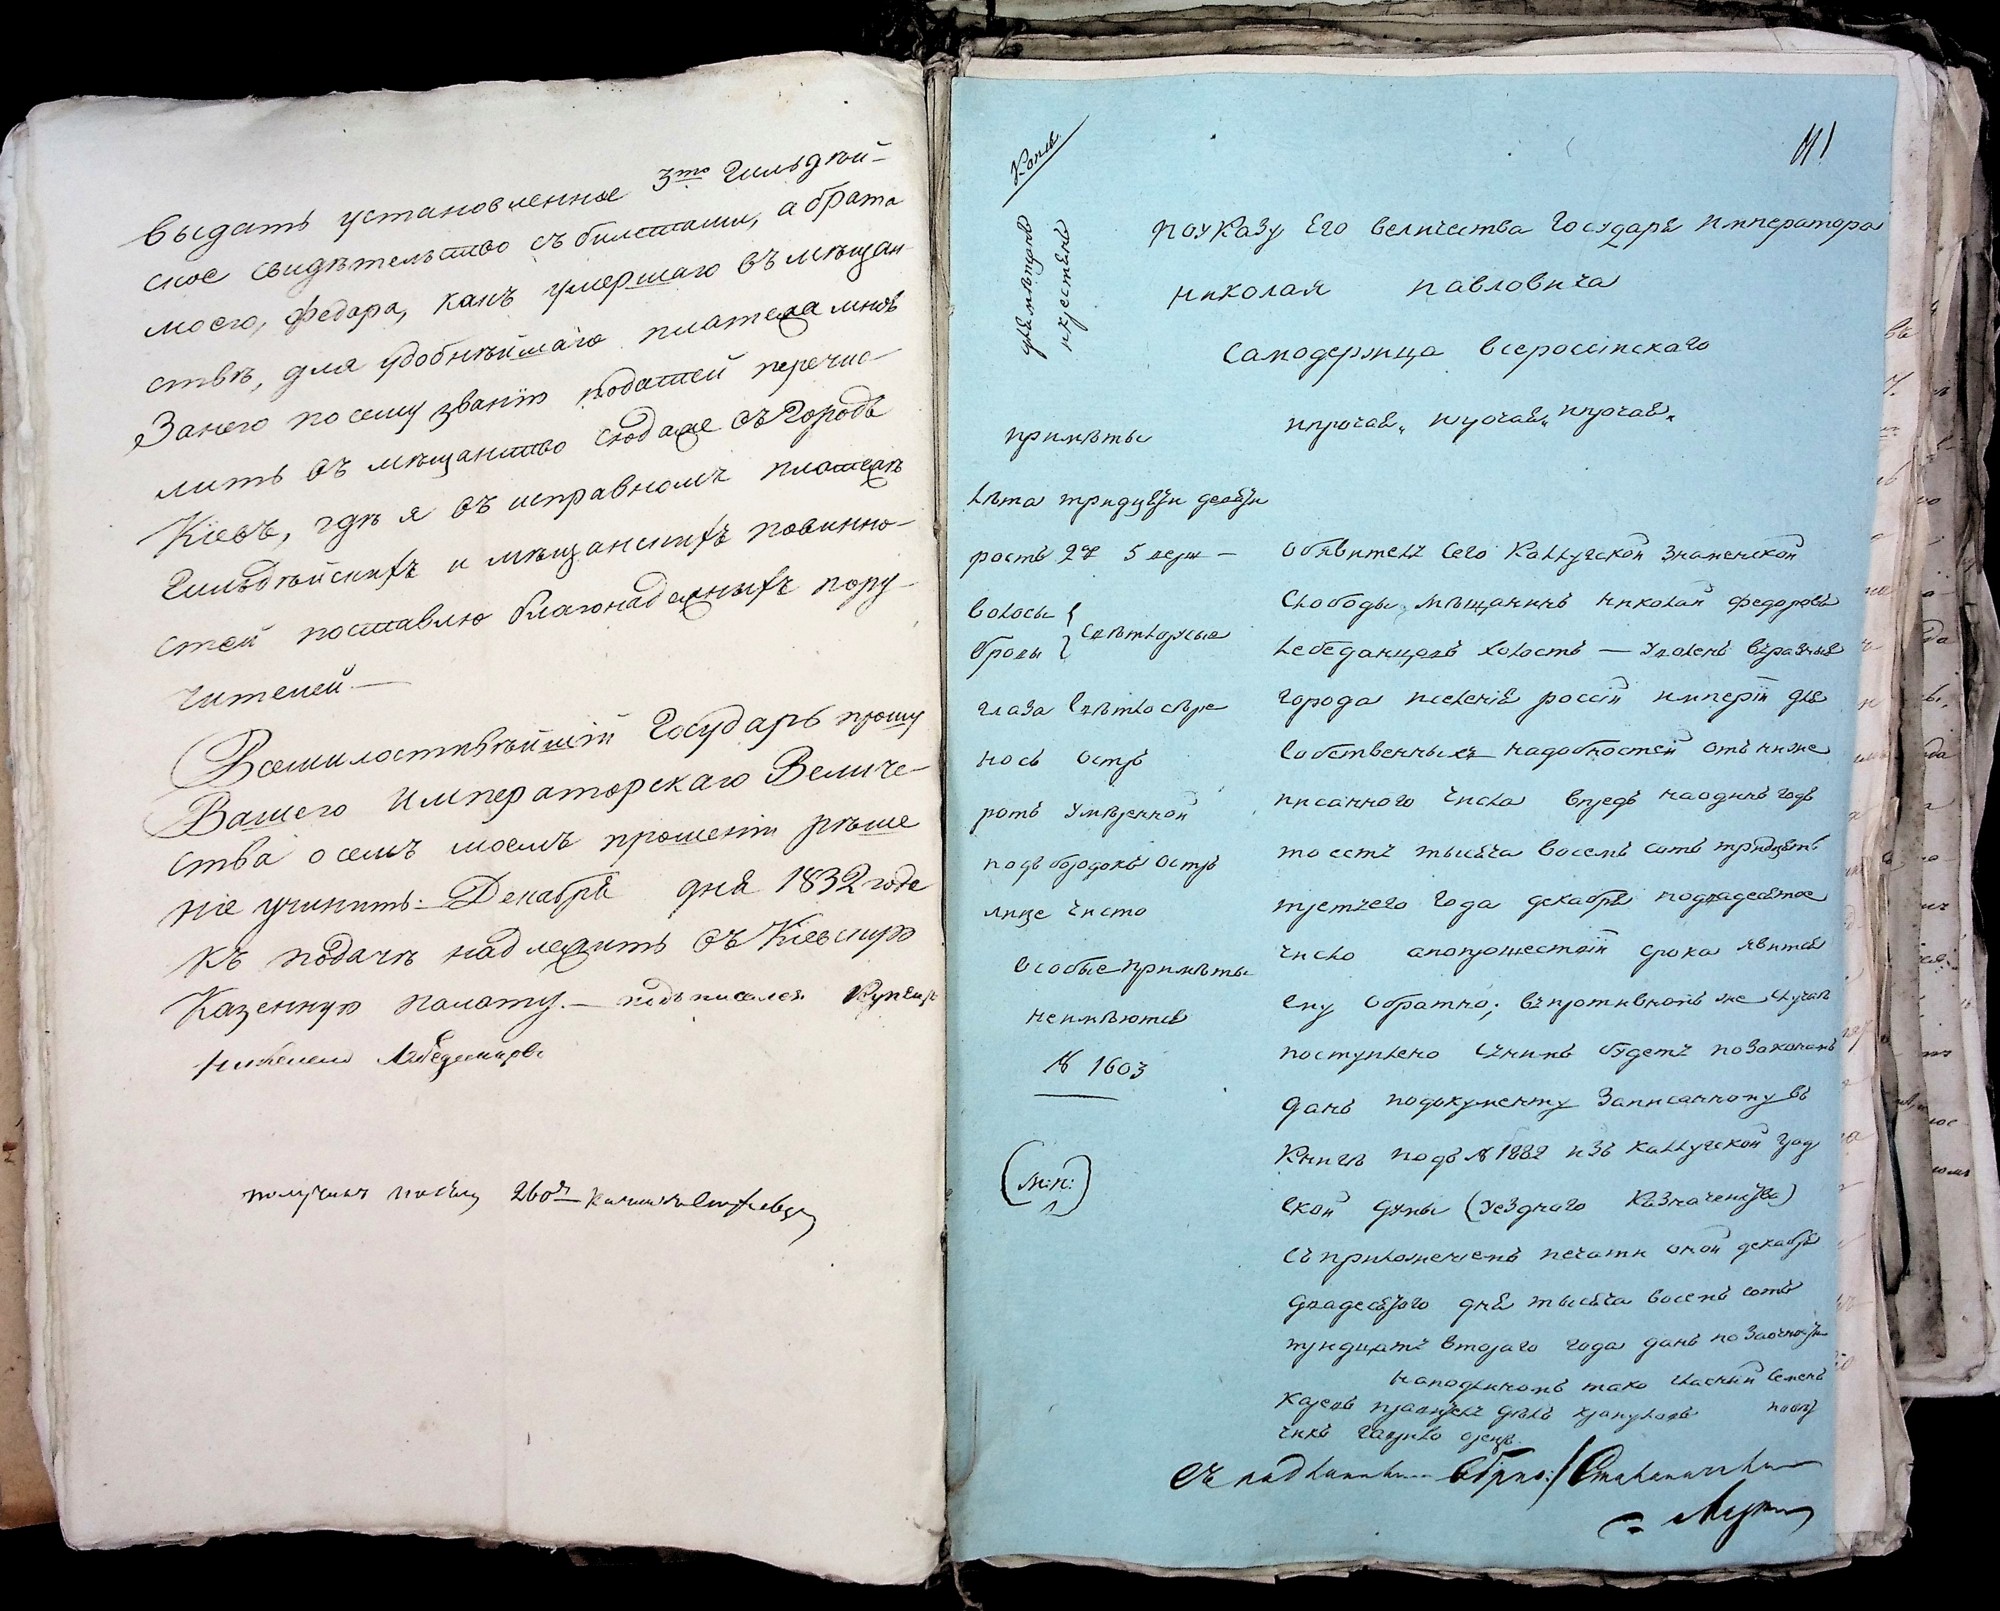 выдать установленное 3то Гильдѣй-
ское свидѣтельство съ билетами, а брата
моего, Федора, какъ умершаго въ мѣщан-
ствѣ, для удобнѣйшаго платежа мною
Занего по сему званію податей перечис-
лить въ мѣщанство сюда же въ Городъ
Кіевъ, гдѣ я въ исправномъ платежѣ
Гильдѣйскихъ и мѣщанскихъ повинно-
стей поставлю благонадежныхъ пору-
чителей.—
Всемилостивѣйшій Государь прошу
Вашего Императорскаго Величе-
ства о семъ моемъ прошеніи рѣше
ніе учинить. Декабря дня 1832 года
къ подачѣ надлежитъ въ Кіевскую
Казенную палату.— подписался Купецъ
Николай Лебединцовъ
Копія
111
для мѣщанъ
и крестьянъ
По указу Его величества Государя Императора
Николая Павловича
Самодержца всероссійскаго
и прочая, и прочая, и прочая,
примѣты
лѣта тридцати девяти
ростъ 2 ар 5 верш —
волосы
брови
свѣтлорусые
глаза свѣтлосѣрые
носъ остръ
ротъ умѣренной
подбородокъ остръ
лице чисто
Особые примѣты
неимѣются
№ 1603
(М: П:)
Объявитель сего Калужской Знаменской
Слободы мѣщанинъ Николай Федоровъ
Лебединцовъ холостъ — уволенъ в разные
города и селенія россій империи для
собственныхъ надобностей отъ ниже
писанного числа впредь на одинъ годъ
то есть тысяча восемь сотъ тридцать
третьего года декабря по двадесятое
число а по прошествіи срока явится
ему обратно; в противномъ же случаѣ
поступлено с нимъ будетъ по законамъ
Данъ по документу Записанному въ
Книгѣ подъ № 1882 изъ Калужской град
ской Думы (уѣздного Казначейства)
съ приложениемъ печати оной декабря
двадесятого дня тысяча восемь сотъ
тридцать второго года данъ по
на подлиномъ тако гласный Семенъ